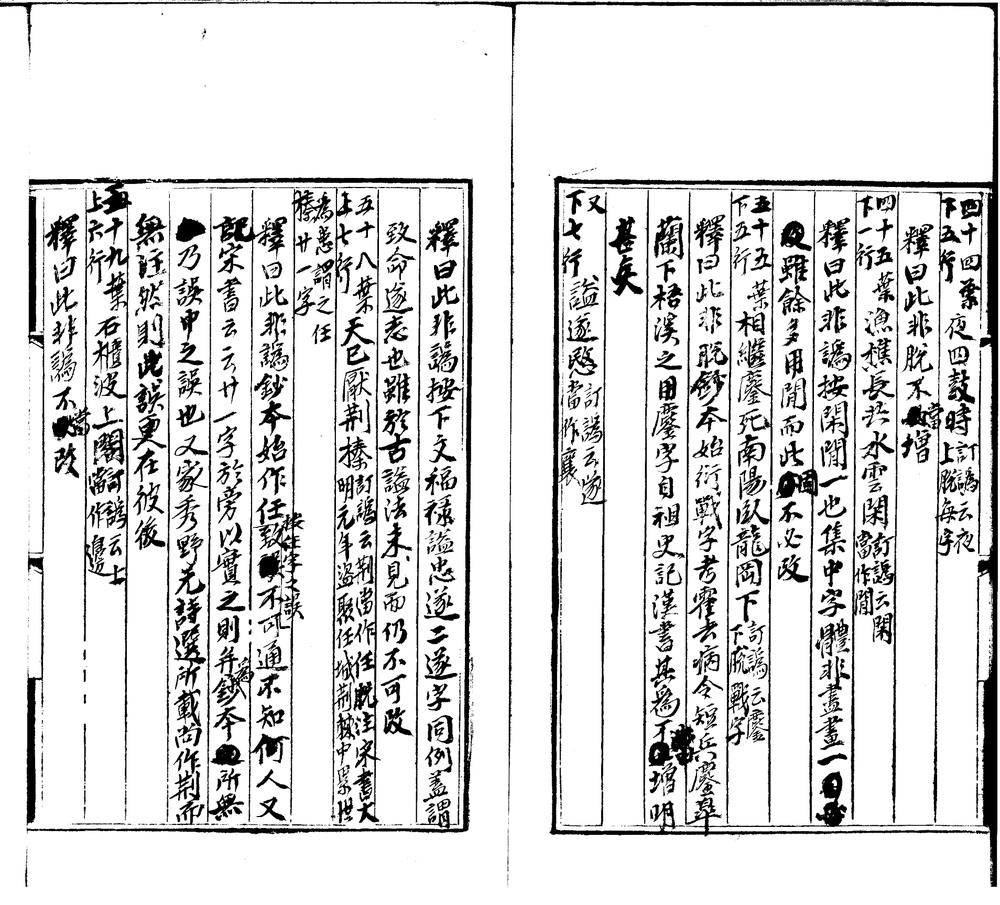 四十四葉下五行夜四鼓時訂譌云夜時上脫每字
釋曰此非脫不當增
四十五葉下一行漁樵長共水雲閑訂譌云閑當作閒
釋曰此非譌按閑閒一也集中字體非盡畫一
雖餘多用閒而此固不必改
五十五葉下五行相繼鏖死南陽臥龍岡下訂譌云鏖下脫戰字
釋曰此非脫鈔本始衍戰字考霍去病令短兵鏖皐
蘭下梧溪之用鏖字自祖史記漢書其為不當增明
甚矣
又下七行謚遂愍訂譌云遂當作襄
釋曰此非譌按下文福祿謚忠遂二遂字同例蓋謂
致命遂志也雖於古謚法未見而仍不可改
五十八葉上七行天已厭荆榛訂譌云荆當作任脫注宋書大明元年盜聚任城荆棘中累世為患謂之任榛廿一字
釋曰此非譌鈔本始作任致不可通不知何人又
按注字之誤
記宋書云云廿一字於旁以實之則并為鈔本所無
乃誤中之誤也又家秀野元詩選所載尚作荆而
無注然則此誤更在彼後
五十九葉上六行石櫃波上闊訂譌云上當作邊
釋曰此非譌不當改